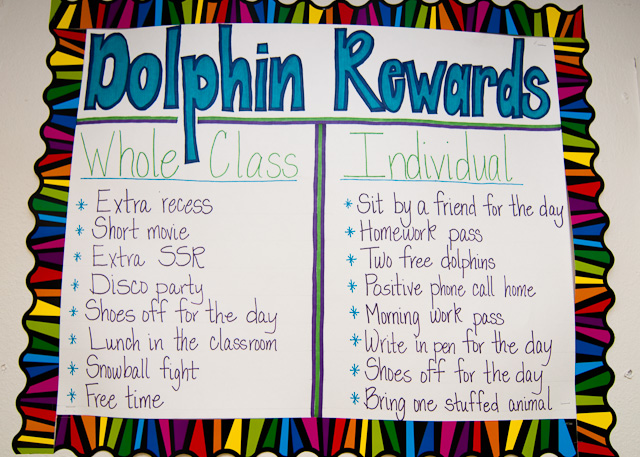 Dolphin Rewards
Whole Class
* Extra recess
* Short movie
* Extra SSR
* Disco party
* Shoes off for the day
* Lunch in the classroom
* Snowball fight
* Free time
Individual
* Sit by a friend for the day
* Homework pass
* Two free dolphins
* Positive phone call home
* Morning work pass
* Write in pen for the day
* Shoes off for the day
* Bring one stuffed animal